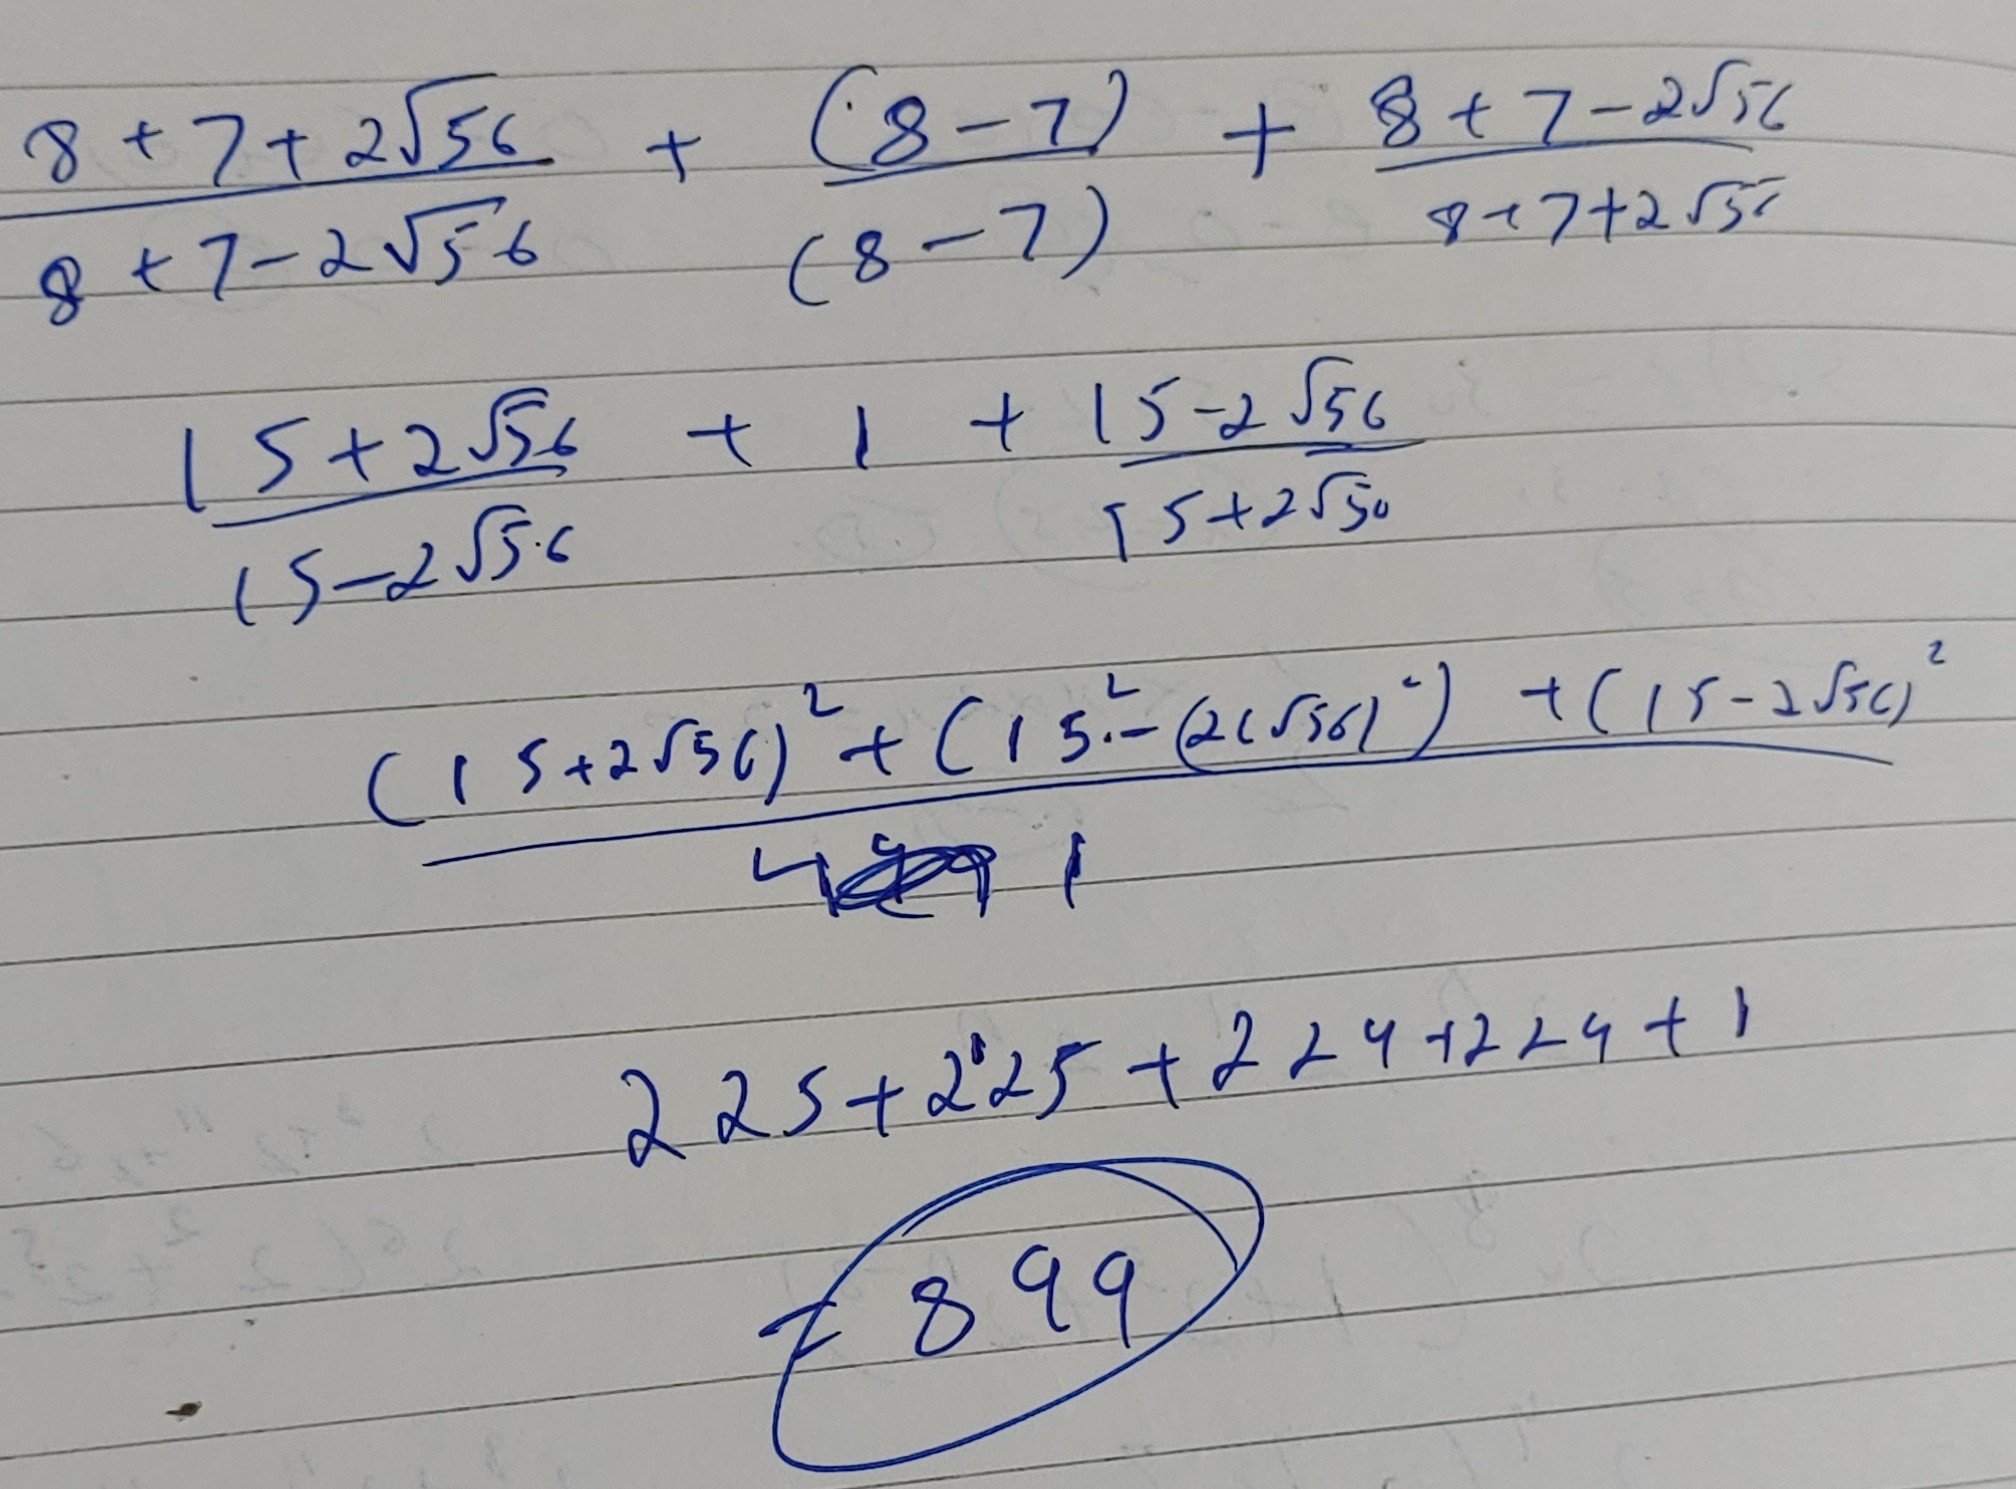 8 + 7 + 2√56 + (8 - 7) + 8 + 7 - 2√56
8 + 7 - 2√56 (8 - 7) 8 + 7 + 2√56
15 + 2√56 + 1 + 15 - 2√56
15 - 2√56 15 + 2√50
(15 + 2√56)² + (15² - (2(√56)²) + (15 - 2√56)²
1
225 + 225 + 224 + 224 + 1
= 899